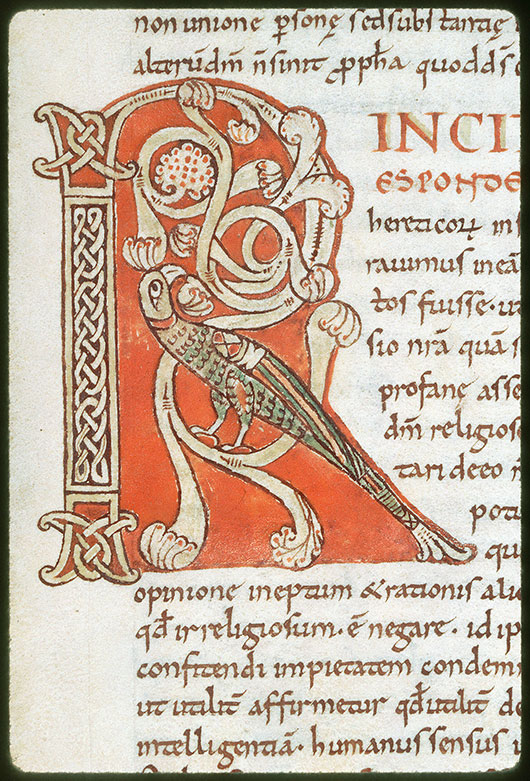 non unione psonę sed substantię
alterūdm̄ n̄ sinit ꝓpħa quodd̄s
R INCI
ESPONDE
hereticoꝝ in
rauimus in eā
tos fuisse · ut
sio nr̄a quā s
profanę asse
dm̄ religios
tari de eo n̄
potu
qu
opinione ineptum & rationis ali
qd̄ irreligiosum · ē negare · id ip
confitendi impietatem condem
ut utilit̄ affirmetur qd̄ utilit̄ de
intelligentiā · humanus sensus